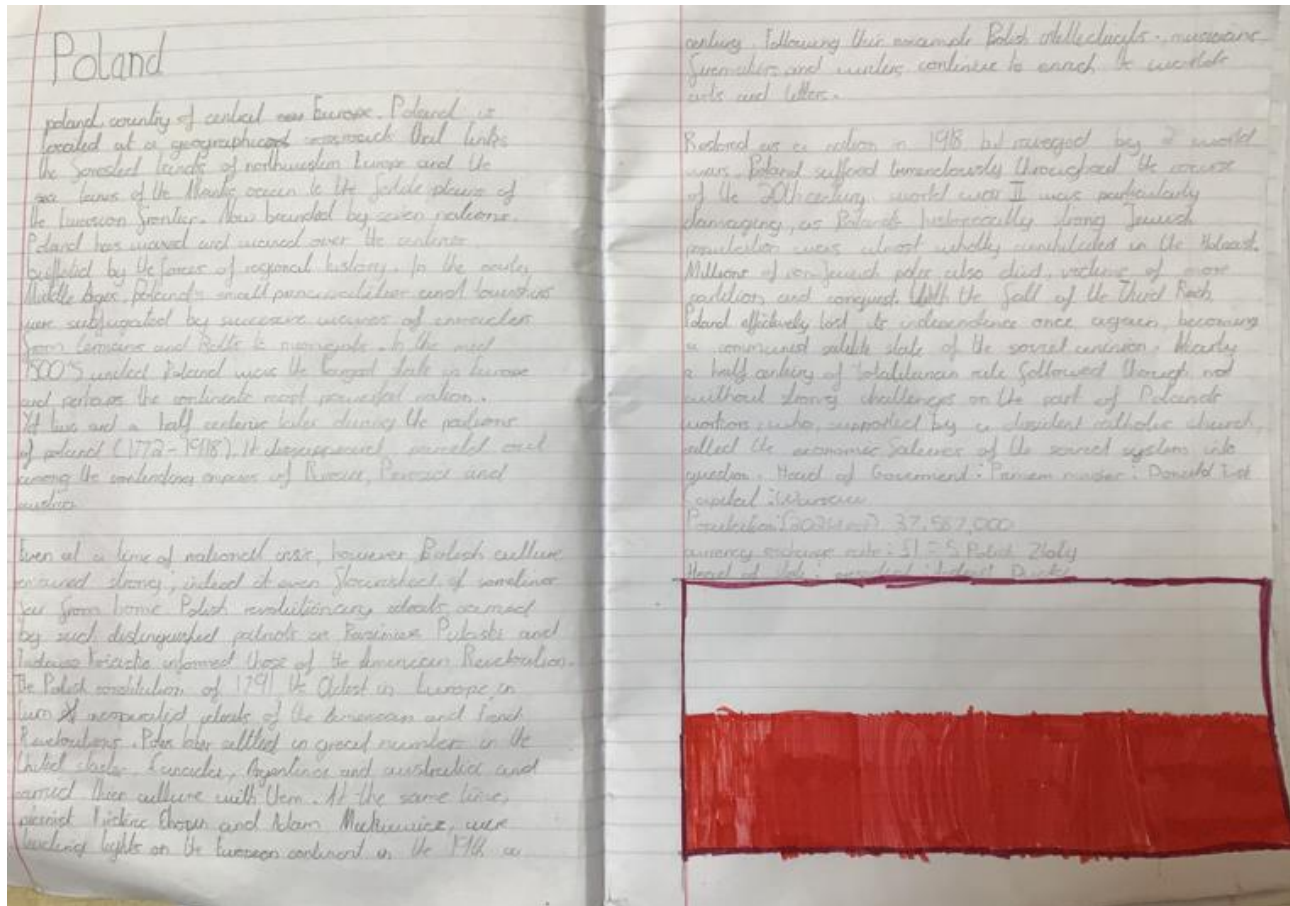 Poland
poland, country of central Europe. Poland is
located at a geographical that links
the forested lands of northwestern Europe and the
sea lanes of the Atlantic ocean to the fertile plains of
the Eurasian frontier. Now bounded by seven nations,
Poland has waxed and waned over the centuries
buffeted by the forces of regional history. In the early
Middle Ages, Poland's small principalities and townships
were subjugated by successive waves of invaders
from Germans and Balts to mongols. In the mid
1500's united Poland was the largest state in Europe
and perhaps the continents most powerful nation.
Yet two and a half centuries later during the partitions
of poland (1772-1918), it disappeared, parceled out
among the contending empires of Russia, Prussia and
austria
Even at a time of national crisis, however Polish culture
remained strong, indeed it even flourished, if sometimes
far from home Polish revolutionary ideals, carried
by such distinguished patriots as Pulaski and
informed those of the American
The Polish constitution of 1791 the Oldest in Europe, in
turn ideals of the American and
Poles later settled in great number in the
United states, Canada, Argentina and australia and
carried their culture with them. At the same time,
pianist and Adam were
leading lights on the European continent in the 19th
century. Following their example Polish intellectuals, musicians
and writers continue to enrich the world's
arts and letters.
Restored as a nation in 1918 but ravaged by 2 world
wars, Poland suffered tremendously throughout the course
of the 20th century. world war II was particularly
damaging, as Polands historically strong Jewish
population was almost wholly annihilated in the
Millions of non Jewish poles also died, victims of more
partition and conquest. With the fall of the Third
Poland effectively lost its independence once again, becoming
a communist satelite state of the soviet Nearly
a half century of totalitarian rule followed though not
without strong challenges on the part of Polands
workers, who, supported by a dissident catholic church,
called the economic failures of the soviet system into
question. Head of Goverment: minister: Donald
Capital: Warsaw
Population: 37,567,000
currency exchange rate: $1 = 5 Polish Zloty
Head of state: president: